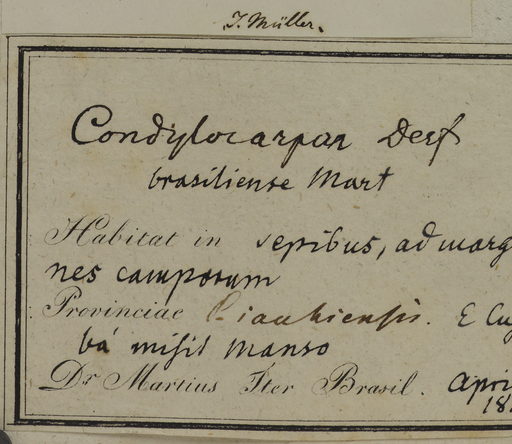 J. Müller.
Condylocarpon Desf
brasiliense Mart
Habitat in sepibus, ad marg
nes camporum
Provinciae Piauhiensis. E Cuy
bá misit Manso
Dr Martius Iter Brasil. April
18